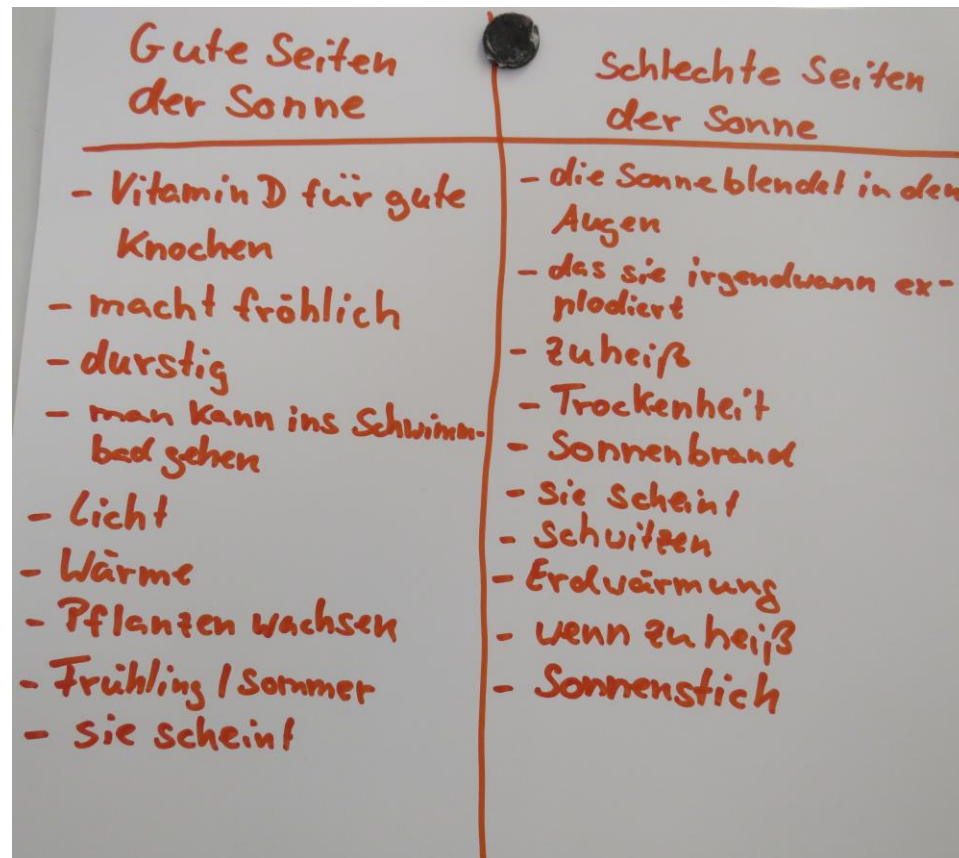 Gute Seiten
der Sonne
- Vitamin D für gute
Knochen
- macht fröhlich
- durstig
- man kann ins Schwimm-
bad gehen
- Licht
- Wärme
- Pflanzen wachsen
- Frühling / Sommer
- sie scheint
Schlechte Seiten
der Sonne
- die Sonne blendet in den
Augen
- das sie irgendwann ex-
plodiert
- zu heiß
- Trockenheit
- Sonnenbrand
- sie scheint
- schwitzen
- Erdwärmung
- wenn zu heiß
- Sonnenstich